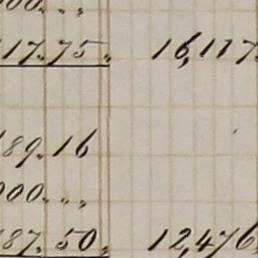 000. „ „
117. 75 „ 16,117.
189. 16
000. „ „
187. 50 „ 12,476.